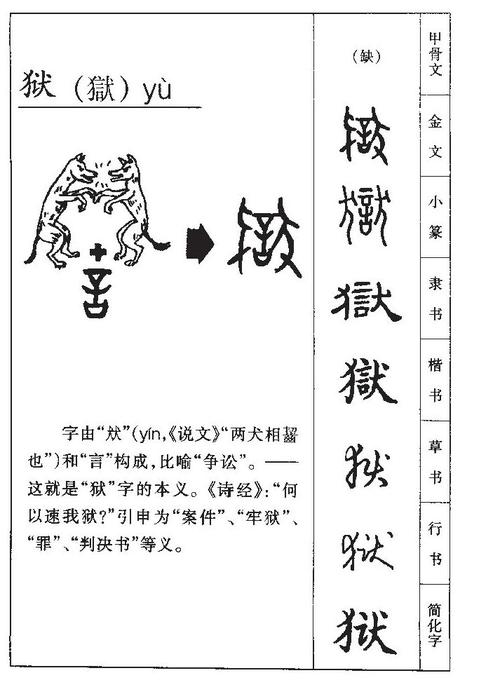 狱（獄）yù
字由“㹜”(yín,《说文》“两犬相齧
也”)和“言”构成，比喻“争讼”。——
这就是“狱”字的本义。《诗经》：“何
以速我狱？”引申为“案件”、“牢狱”、
“罪”、“判决书”等义。
（缺） 甲骨文
獄 金文
獄 小篆
獄 隶书
獄 楷书
狱 草书
狱 行书
狱 简化字